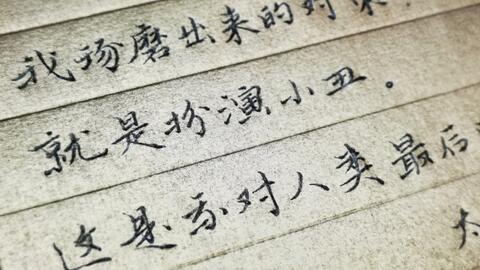 我琢磨出来的对策，
就是扮演小丑。
这是我对人类最后
太